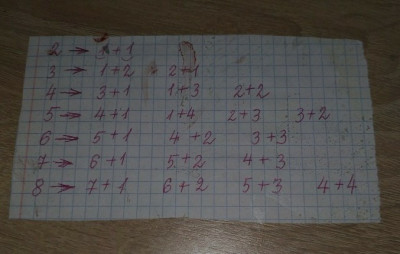 2 → 1+1
3 → 1+2 2+1
4 → 3+1 1+3 2+2
5 → 4+1 1+4 2+3 3+2
6 → 5+1 4+2 3+3
7 → 6+1 5+2 4+3
8 → 7+1 6+2 5+3 4+4